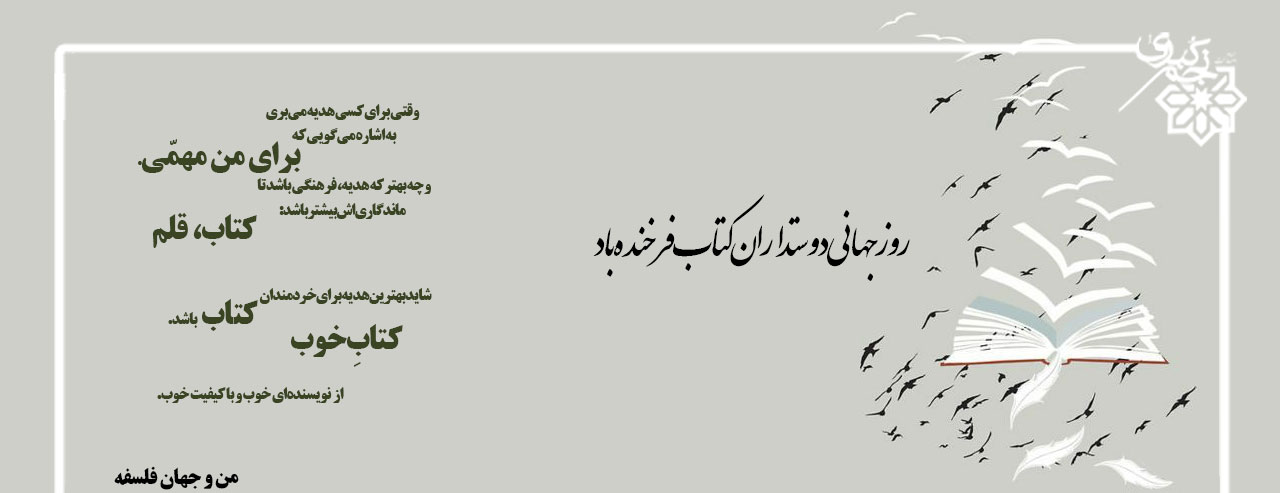 روز جهانی دوستداران کتاب فرخنده باد
وقتی برای کسی هدیه می‌بری
به اشاره می‌گویی که
برای من مهمّی.
و چه بهتر که هدیه، فرهنگی باشد تا
ماندگاری‌اش بیشتر باشد:
کتاب، قلم
شاید بهترین هدیه برای خردمندان
کتاب باشد.
کتابِ خوب
از نویسنده‌ای خوب و با کیفیت خوب.
من و جهان فلسفه